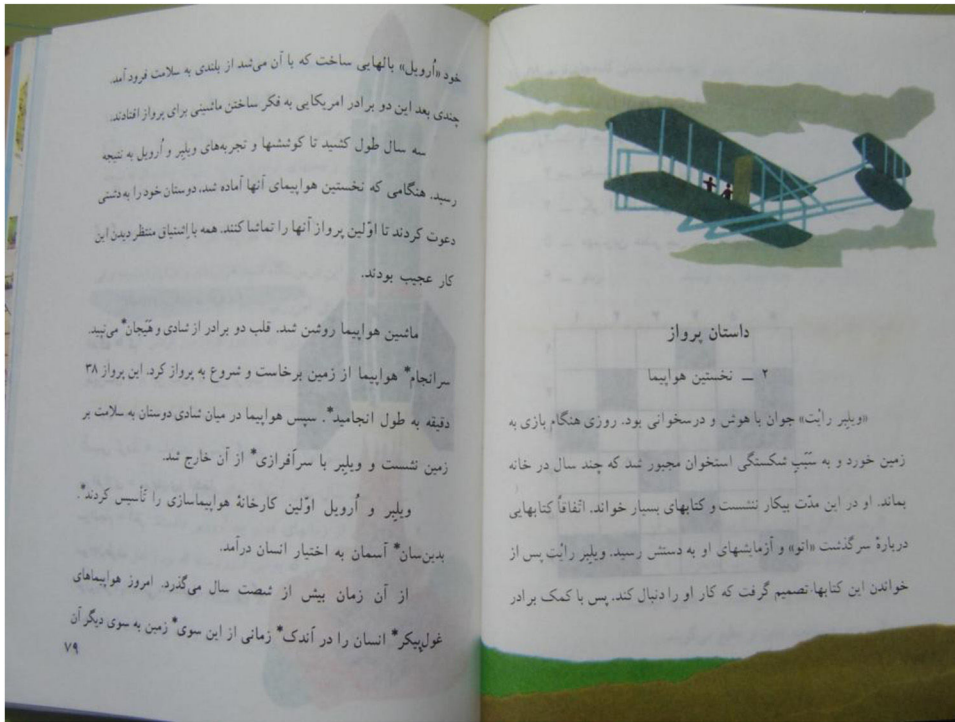 داستان پرواز
۲ – نخستین هواپیما
«ویلبِر رایْت» جوان با هوش و درسخوانی بود. روزی هنگام بازی به
زمین خورد و به سَبَبِ شکستگی استخوان مجبور شد که چند سال در خانه
بماند. او در این مدّت بیکار ننشست و کتابهای بسیار خواند. اتّفاقاً کتابهایی
دربارهٔ سرگذشت «اتو» و آزمایشهای او به دستش رسید. ویلبِر رایْت پس از
خواندن این کتابها، تصمیم گرفت که کار او را دنبال کند. پس با کمک برادر
خود «اُرویل» بالهایی ساخت که با آن می‌شد از بلندی به سلامت فرود آمد.
چندی بعد این دو برادر امریکایی به فکر ساختن ماشینی برای پرواز افتادند.
سه سال طول کشید تا کوششها و تجربه‌های ویلبِر و اُرویل به نتیجه
رسید. هنگامی که نخستین هواپیمای آنها آماده شد، دوستان خود را به دشتی
دعوت کردند تا اوّلین پرواز آنها را تماشا کنند. همه با اِشتیاق منتظر دیدن این
کار عجیب بودند.
ماشین هواپیما روشن شد. قلب دو برادر از شادی و هَیَجان* می‌تپید.
سرانجام* هواپیما از زمین برخاست و شروع به پرواز کرد. این پرواز ۳۸
دقیقه به طول انجامید*. سپس هواپیما در میان شادی دوستان به سلامت بر
زمین نشست و ویلبِر با سرآفرازی* از آن خارج شد.
ویلبِر و اُرویل اوّلین کارخانهٔ هواپیماسازی را تَأسیس کردند*.
بدین‌سان* آسمان به اختیار انسان درآمد.
از آن زمان بیش از شصت سال می‌گذرد. امروز هواپیماهای
غول‌پیکر* انسان را در اَندک* زمانی از این سوی* زمین به سوی دیگر آن
۷۹